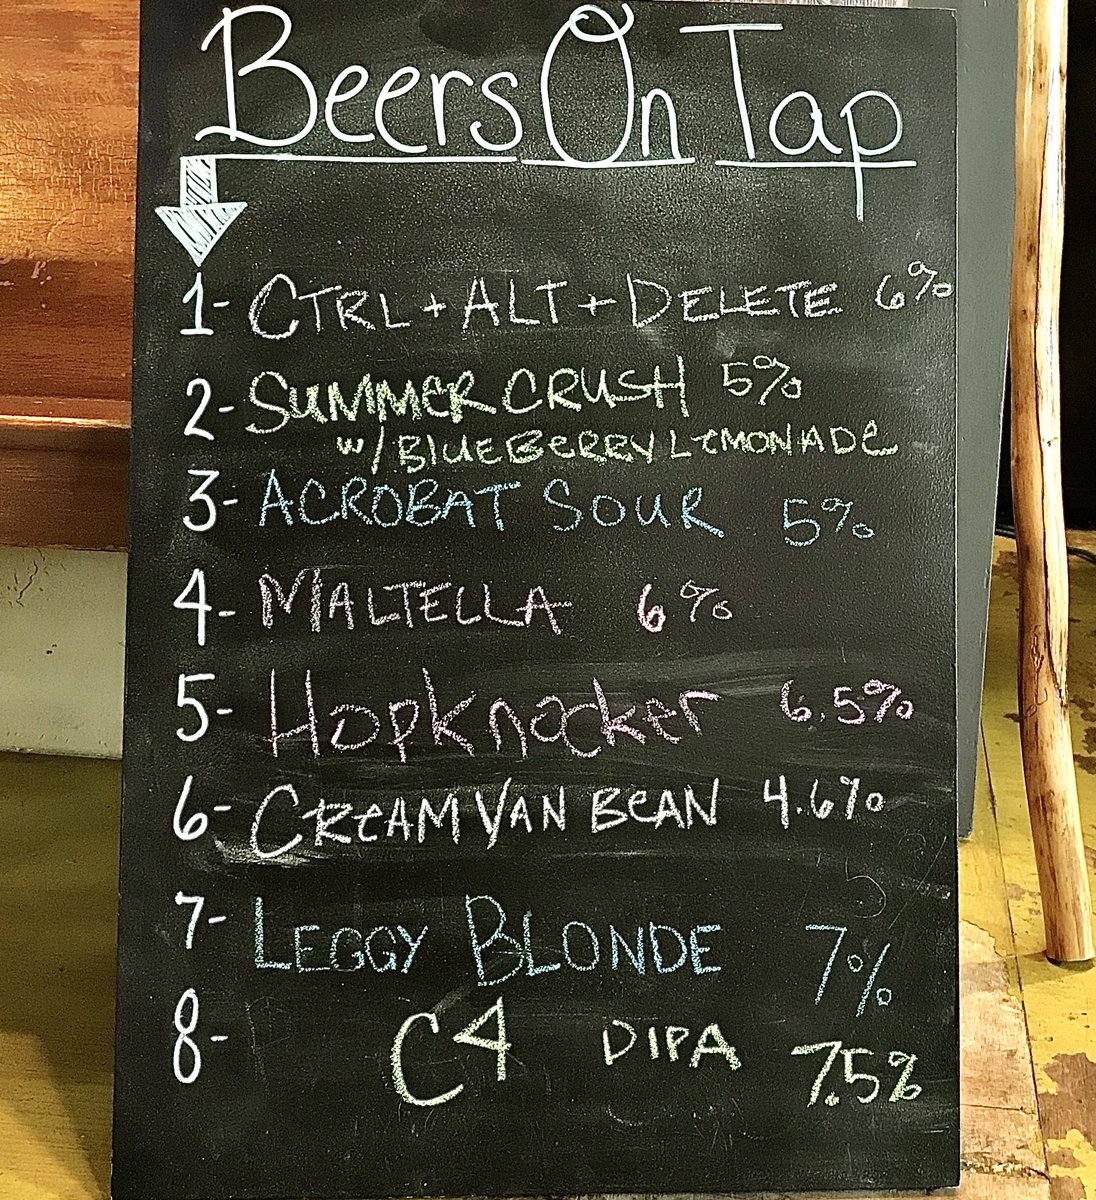 Beers On Tap
1- CTRL + ALT + DELETE 6%
2- SUMMER CRUSH 5%
W/ BLUEBERRY LEMONADE
3- ACROBAT SOUR 5%
4- MALTELLA 6%
5- Hopknocker 6.5%
6- CREAM VAN BEAN 4.6%
7- LEGGY BLONDE 7%
8- C4 DIPA 7.5%